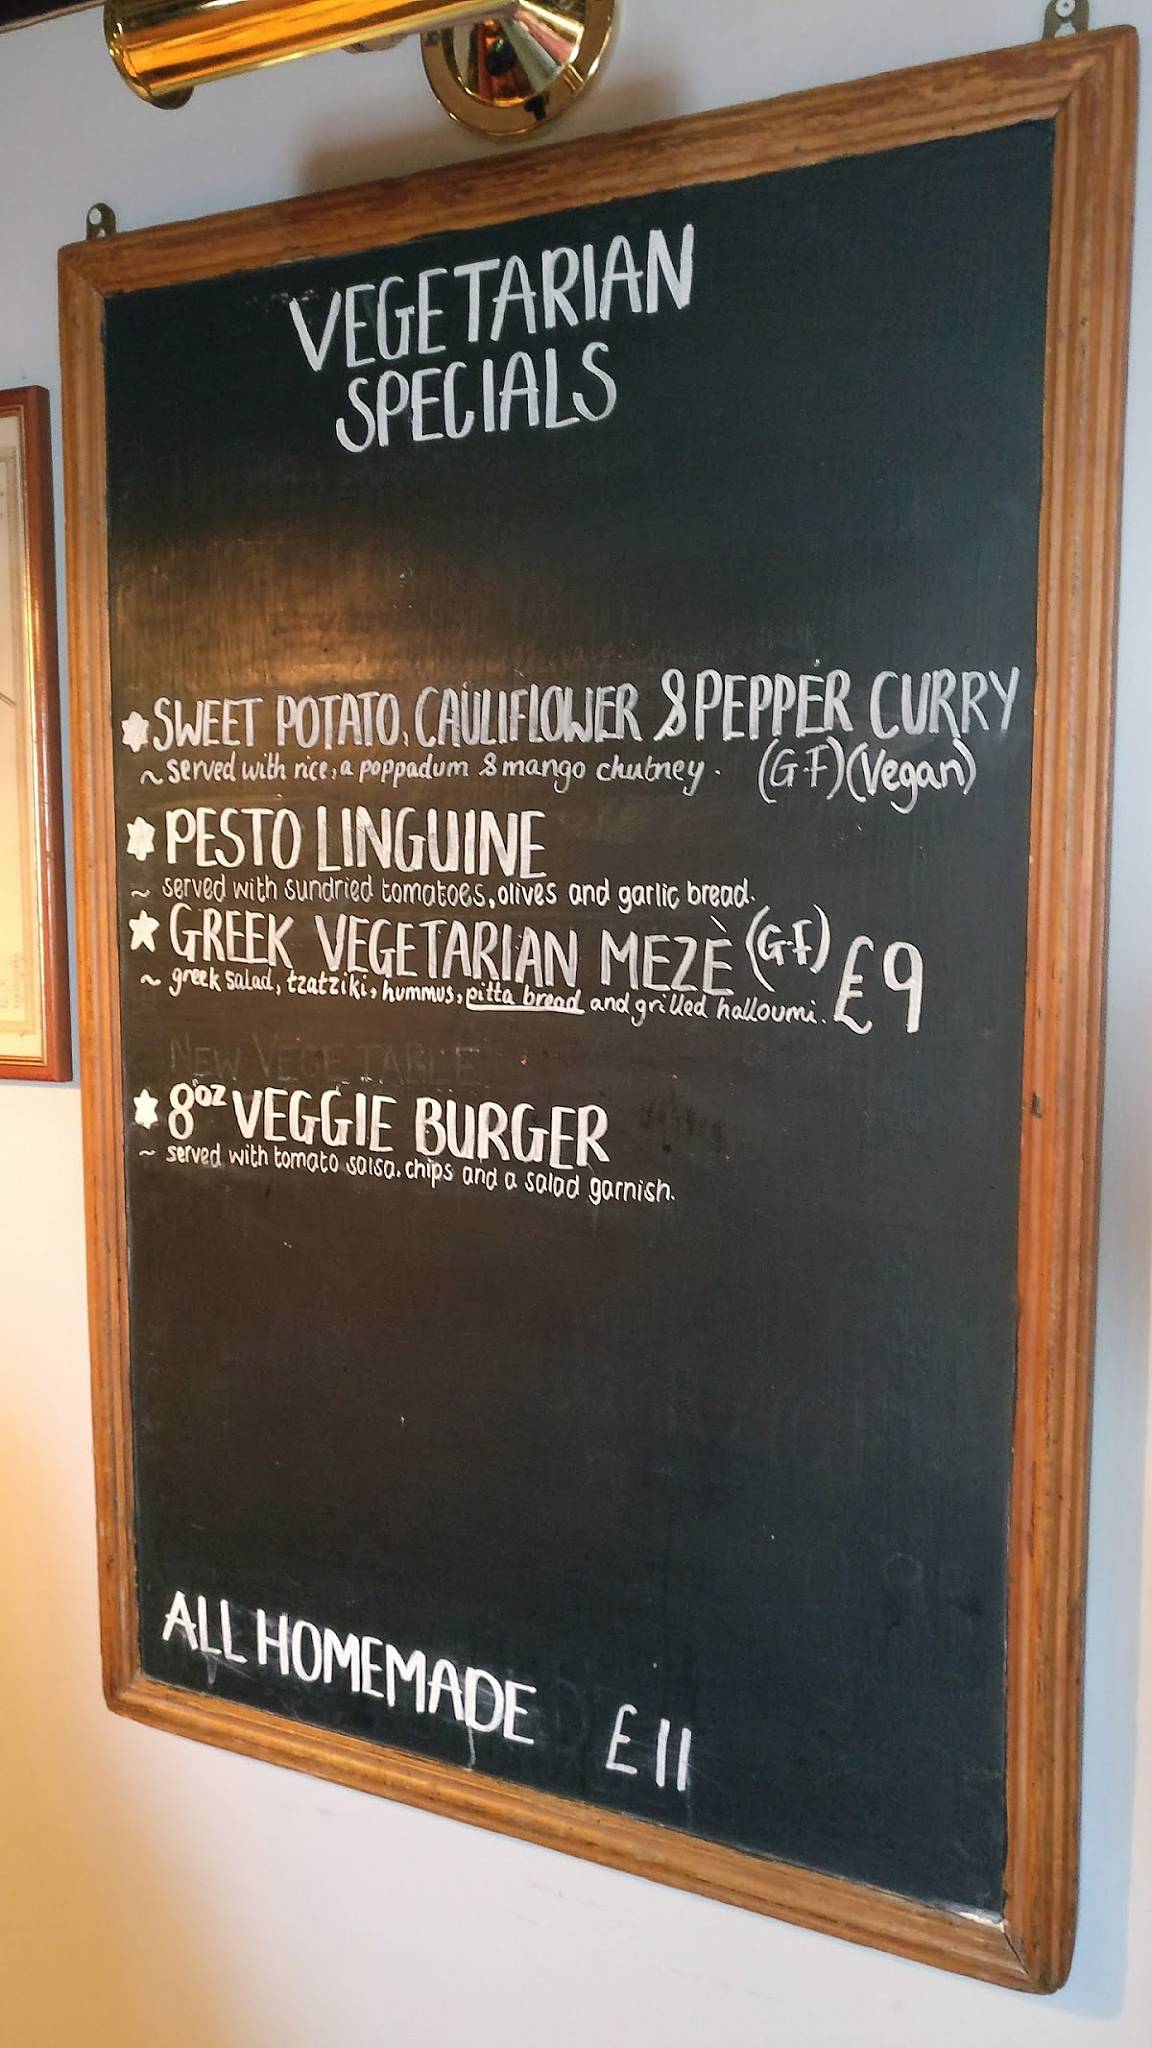 VEGETARIAN
SPECIALS
SWEET POTATO, CAULIFLOWER & PEPPER CURRY
~ served with rice, a poppadum & mango chutney. (GF) (Vegan)
PESTO LINGUINE
~ served with sundried tomatoes, olives and garlic bread.
GREEK VEGETARIAN MEZÈ (GF) £9
~ greek salad, tzatziki, hummus, pitta bread and grilled halloumi.
NEW VEGETABLE
8oz VEGGIE BURGER
~ served with tomato salsa, chips and a salad garnish.
ALL HOMEMADE £11